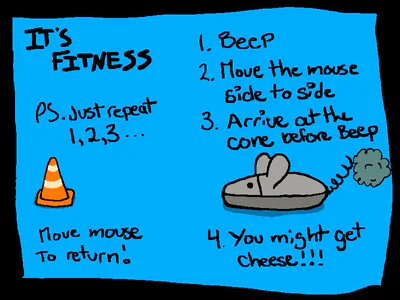 IT'S
FITNESS
PS. Just repeat
1,2,3 ...
Move mouse
To return!
1. Beep
2. Move the mouse
side to side
3. Arrive at the
cone before Beep
4. You might get
cheese!!!